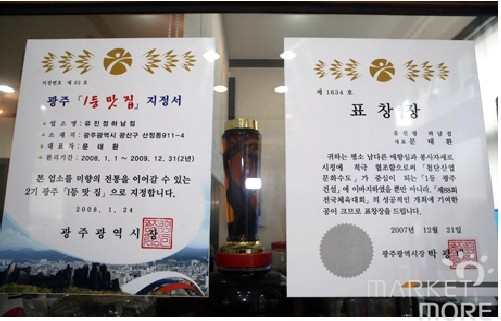 지정번호 제 62 호
광주 「1등 맛집」 지정서
업 소 명 : 유진정하남점
소 재 지 : 광주광역시 광산구 산정동911-4
대 표 자 : 문 태 환
관리기간 : 2008. 1. 1 ~ 2009. 12. 31(2년)
본 업소를 미향의 전통을 이어갈 수 있는
2기 광주 「1등 맛집」으로 지정합니다.
2008. 1. 24
광 주 광 역 시 장
제 1634 호
표 창 장
유진정 하남점
대표 문 태 환
귀하는 평소 남다른 애향심과 봉사자세로
시정에 적극 협조함으로써 「첨단산업
문화수도」가 중심이 되는 「1등 광주
건설」에 이바지하였을 뿐만 아니라, 「제88회
전국체육대회」의 성공적인 개최에 기여한
공이 크므로 표창장을 드립니다.
2007년 12월 21일
광주광역시장 박 광
MARKET
MORE